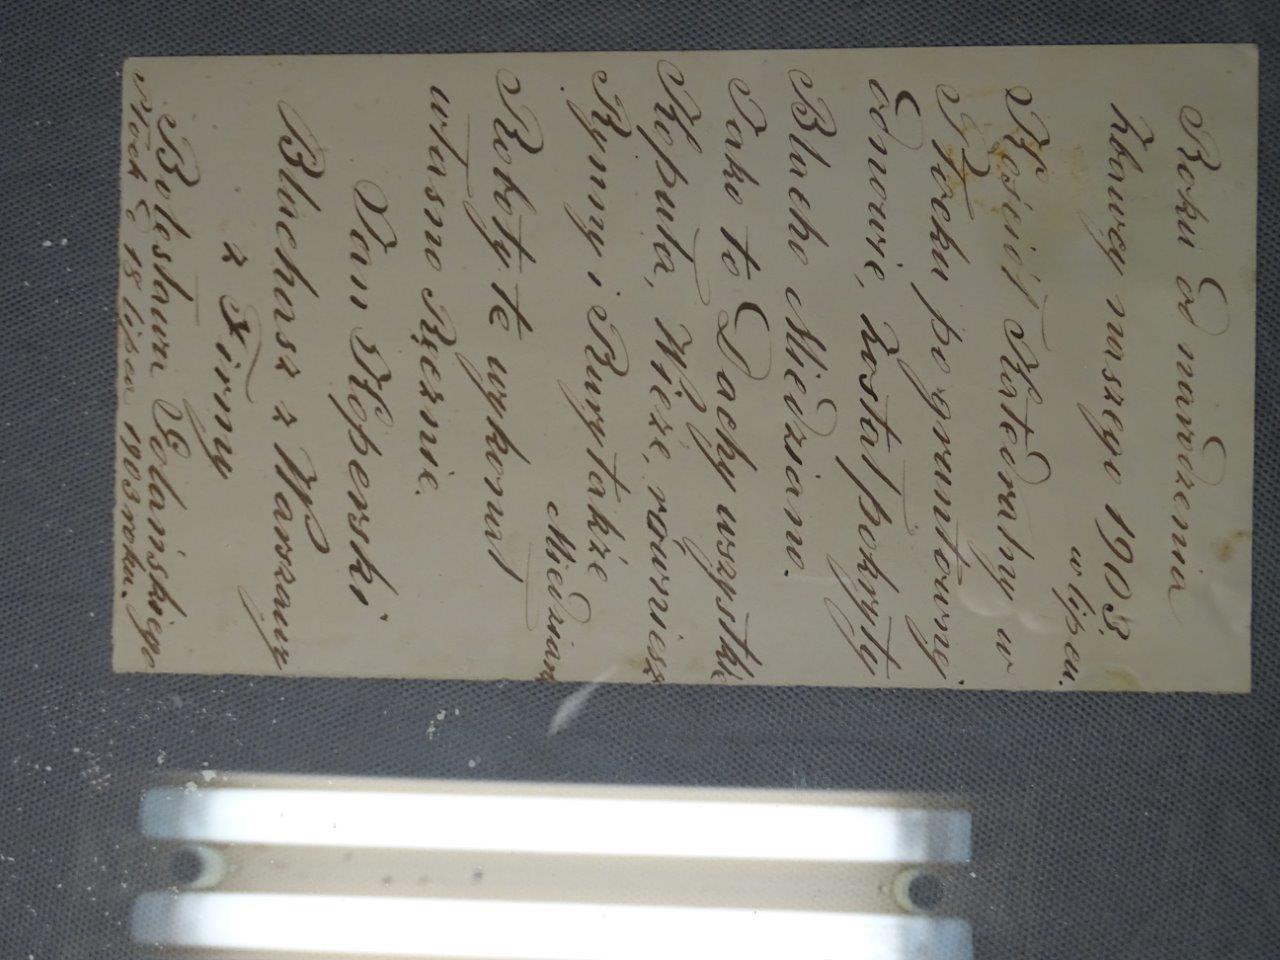 Roku od narodzenia
Zbawcy naszego 1903
w lipcu.
Kościół Katedralny w
Płocku po gruntownej
odnowie, został pokryty
Blacho Miedziano.
Jako to Dachy wszystkie
Kopuła, Wieże, rownież
Rynny i Rury także
Miedziane
Roboty te wykonał
własno Ręcznie.
Jan Koperski
Blacharz z Warszawy
z Firmy
Bolesława Golańskiego
Płock d 18 lipca 1903 roku.